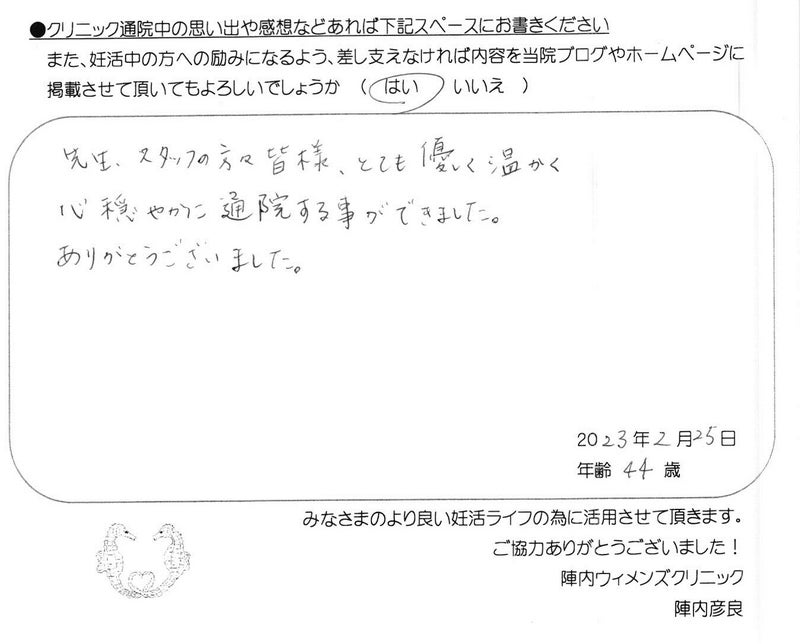 ●クリニック通院中の思い出や感想などあれば下記スペースにお書きください
また、妊活中の方への励みになるよう、差し支えなければ内容を当院ブログやホームページに
掲載させて頂いてもよろしいでしょうか （ はい いいえ ）
先生、スタッフの方々皆様、とても優しく温かく
心穏やかに通院する事ができました。
ありがとうございました。
2023年2月25日
年齢 44 歳
みなさまのより良い妊活ライフの為に活用させて頂きます。
ご協力ありがとうございました！
陣内ウィメンズクリニック
陣内彦良